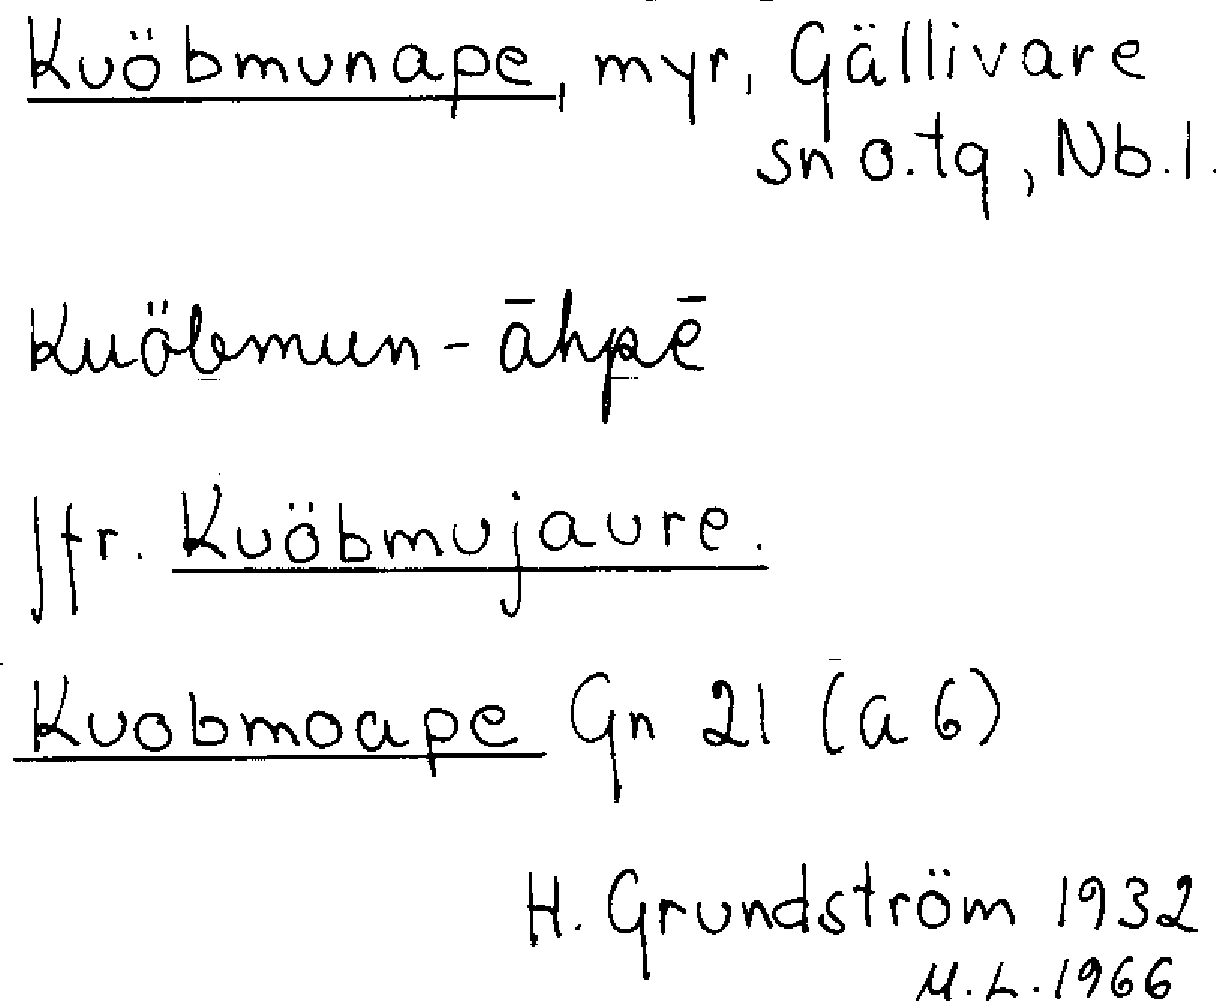 Kuöbmunape, myr, Gällivare
sn o. tg, Nb. l.
Kuöbmun-āhpē
Jfr. Kuöbmujaure.
Kuobmoape Gn 21 (a 6)
H. Grundström 1932
M. L. 1966